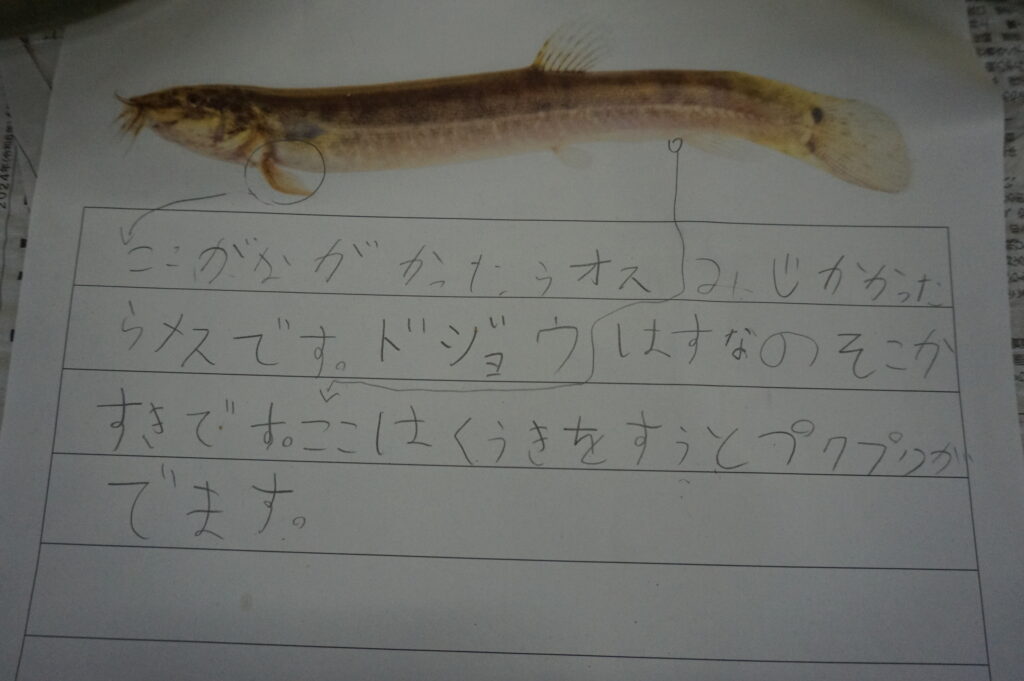 ここがながかったらオス みじかかった
らメスです。ドジョウはすなのそこが
すきです。ここはくうきをすうとプクプクが
でます。
2024年(令和6年)